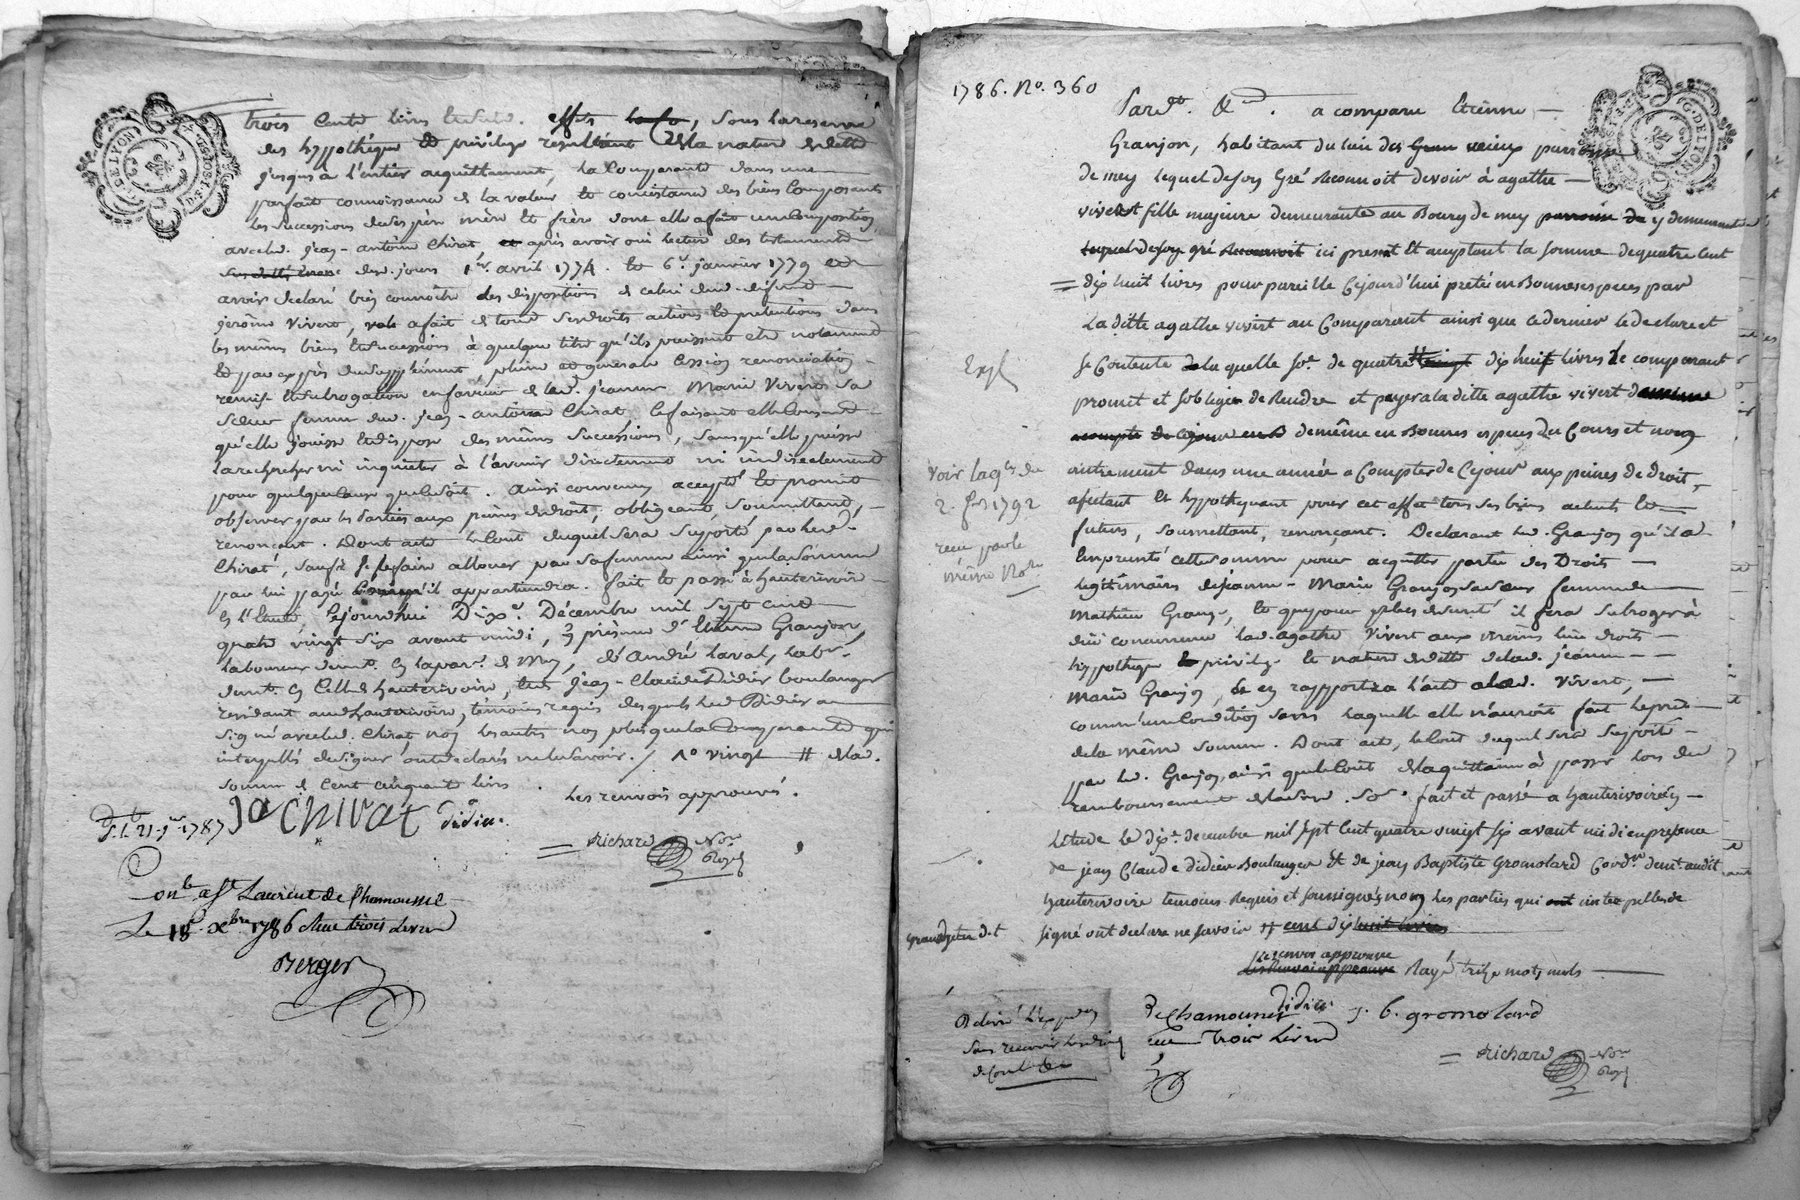 trois cents livres effets , sous la reserve
des hyppothèque & privilege resultant de la nature de dette
jusques à l'entier acquittement, la Comparante dans une
parfaite connoissance de la valeur et consistance des biens Composants
les successions de ses père mère et frère dont elle a fait une Composition
avec led. jean-antoine Chirat et après avoir oui lecture des testaments
des jours 1er avril 1774. et 6e janvier 1779 et
avoir declaré bien connoitre des dispositions de celui dud. defunt
jerôme Vivert, a fait de tous ses droits actions et pretentions dans
les mêmes biens et successions à quelque titre qu'ils puissent etre notamment
et par exprès du supplément, pleine et generale Cession renonciation
remise et subrogation en faveur de lad. jeanne Marie Vivert sa
soeur femme dud. jean-antoine Chirat, le faisant elle Consent
qu'elle jouisse et dispose des mêmes successions, sans qu'elle puisse
la rechercher ni inquieter à l'avenir directement ni indirectement
pour quelque cause que ce soit. ainsi convenu accepté et promis
observer par les parties aux peines de droit, obligeant, soumettant,
renonçant. Dont acte le Cout duquel sera suporté par led.
Chirat, sauf à se le faire allouer par sa femme ainsi que la somme
par lui payée qu'il appartiendra. fait et passé à hauterivoire
en l'Etude Cejourdhui Dixe. Décembre mil sept cent
quatre vingt six avant midi, en présence d'Etienne Granjon
laboureur demt. en la par. de Mey, d'André Laval, labr.
demt. en celle d hauterivoire, et de jean-Claude Didier boulanger
residant aud hauterivoire, témoins requis desquels led Didier a
signé avec led. Chirat, non les autres non plus que la Comparante qui
interpellés de signer ont declarés ne le savoir. / No vingt # de lad.
somme de Cent cinquante livres
les renvois approuvés.
ja Chirat didier.
Richard Nore
Royal
1787
Conlé à St Laurent de Chamousset
Le 18 Xbre 1786 Reçu trois livres
Berger
1786. No. 360
Pardt. &. a comparu Etienne
Granjon, habitant du lieu des vieux parroisse
de mey lequel de son Gré Reconnoit devoir à agathe
vivert fille majeure demeurante au Bourg de mey parroisse de y demeurant
lequel de son gré Reconnoit ici present Et acceptant la somme de quatre cent
= dix huit livres pour pareille Cejourd'hui pretée en Bonnes especes par
La ditte agathe vivert au Comparant ainsi que ce dernier le declare et
se Contente de la quelle se. de quatre vingt dix huit livres le comparant
promit et soblige de Rendre et payer a la ditte agathe vivert
a compte de cejour de même en Bonnes especes du Cours et non
autrement dans une année a Compter de Cejour aux peines de Droit,
afectant et hypothequant pour cet effet tous ses biens actuels et
futurs, soumettant, renonçant. Declarant led. Granjon qu'il a
Emprunté cette somme pour acquitter partie des Droits
legitimaires de jeanne-Marie Granjon sa soeur femme de
Mathieu , et que pour plus de sureté il fera subroger à
duë concurrence lad. agathe Vivert aux mêmes lieu droits
hyppotheque & privilege et nature de dette de lad. jeanne
Marie Granjon, & en rapportera l'acte a lad. Vivert,
comme une condition sans laquelle elle n'auroit fait le pret
de la même somme. Dont acte, le Cout duquel sera suporté
par led. Granjon, ainsi que le Coût de la quittance à passer lors du
remboursement de lad. Se. fait et passé a hauterivoire en
L'étude le dixe. decembre mil sept cent quatre vingt six avant midi en presence
de jean Claude didier Boulanger Et de jean Baptiste Gromolard Cordr. demt audit
hauterivoire temoins Requis et soussignés non les parties qui ont interpellés de
signé ont declaré ne savoir # cent dix huit livres
le renvoi approuvé
les Renvois approuvé Rayé treize mots nuls
Expé
voir la qce du
2. 1792
recu par le
même Nore
didier
j. b. gromolard
de Chamousset
reçu Trois Livres
Richard Nore
Royal
Délivré l'Expon
sans recevoir